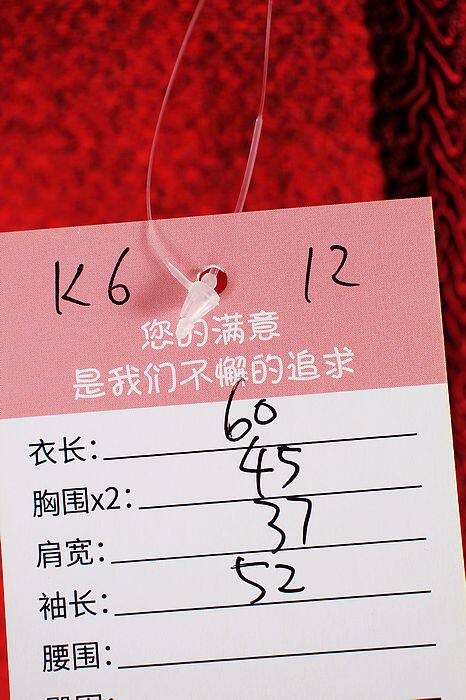 K6 12
您的满意
是我们不懈的追求
衣长: 60
胸围x2: 45
肩宽: 37
袖长: 52
腰围: